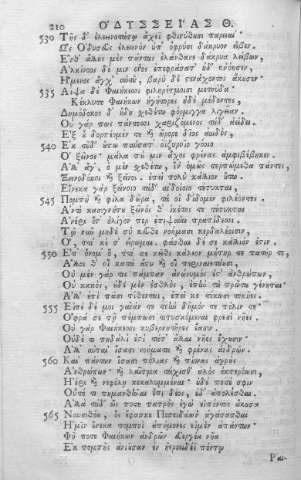 210 Ο'ΔΥΣΣΕΙ'ΑΣ Θ.
530 Τῆς δ' ἐλεεινοτάτῳ ἄχεϊ φθινύθουσι παρειαί·
Ὣς Ὀδυσεὺς ἐλεεινὸν ὑπ' ὀφρύσι δάκρυον εἶβεν.
Ἔνθ' ἄλλους μὲν πάντας ἐλάνθανε δάκρυα λείβων,
Ἀλκίνοος δέ μιν οἶος ἐπεφράσατ' ἠδ' ἐνόησεν,
Ἥμενος ἄγχ' αὐτοῦ, βαρὺ δὲ στενάχοντος ἄκουσεν·
535 Αἶψα δὲ Φαιήκεσσι φιληρέτμοισι μετηύδα·
Κέκλυτε Φαιήκων ἡγήτορες ἠδὲ μέδοντες,
Δημόδοκος δ' ἤδη σχεθέτω φόρμιγγα λίγειαν·
Οὐ γάρ πως πάντεσσι χαριζόμενος τάδ' ἀείδει.
Ἐξ οὗ δορπέομέν τε καὶ ὤρορε δῖος ἀοιδὸς,
540 Ἐκ τοῦδ' οὔπω παύσατ' ὀϊζυροῖο γόοιο
Ὁ ξεῖνος· μάλα πού μιν ἄχος φρένας ἀμφιβέβηκεν.
Ἀλλ' ἄγ', ὁ μὲν σχεθέτω, ἵν' ὁμῶς τερπώμεθα πάντες,
Ξεινοδόκοι καὶ ξεῖνος· ἐπεὶ πολὺ κάλλιον οὕτω·
Εἵνεκα γὰρ ξείνοιο τάδ' αἰδοίοιο τέτυκται,
545 Πομπὴ καὶ φίλα δῶρα, τά οἱ δίδομεν φιλέοντες.
Ἀντὶ κασιγνήτου ξεῖνός θ' ἱκέτης τε τέτυκται
Ἀνέρι ὅστ' ὀλίγον περ ἐπιψαύει πραπίδεσσι.
Τῷ νῦν μηδὲ σὺ κεῦθε νοήμασι κερδαλέοισιν,
Ὅ, ττι κέ σ' εἴρωμαι· φάσθαι δέ σε κάλλιόν ἐστιν.
550 Εἴπ' ὄνομ' ὅ, ττι σε κεῖθι κάλεον μήτηρ τε πατήρ τε,
Ἄλλοι θ' οἳ κατὰ ἄστυ καὶ οἳ περιναιετάουσιν.
Οὐ μὲν γάρ τις πάμπαν ἀνώνυμός ἐστ' ἀνθρώπων,
Οὐ κακὸς, οὐδὲ μὲν ἐσθλὸς, ἐπὴν τὰ πρῶτα γένηται·
Ἀλλ' ἐπὶ πᾶσι τίθενται, ἐπεί κε τέκωσι τοκῆες.
555 Εἰπὲ δέ μοι γαῖάν τε τεὴν δῆμόν τε πόλιν τε·
Ὄφρα σε τῇ πέμπωσι τιτυσκόμεναι φρεσὶ νῆες·
Οὐ γὰρ Φαιήκεσσι κυβερνητῆρες ἔασιν·
Οὐδέ τι πηδάλι' ἐστὶ τάτ' ἄλλαι νῆες ἔχουσιν·
Ἀλλ' αὐταὶ ἴσασι νοήματα καὶ φρένας ἀνδρῶν.
560 Καὶ πάντων ἴσασι πόλιας καὶ πίονας ἀγροὺς
Ἀνθρώπων· καὶ λαῖτμα τάχισθ' ἁλὸς ἐκπερόωσιν,
Ἠέρι καὶ νεφέλῃ κεκαλυμμέναι· οὐδέ ποτέ σφιν
Οὔτέ τι πημανθῆναι ἔπι δέος, οὔτ' ἀπολέσθαι.
Ἀλλὰ τόδ' ὥς ποτε πατρὸς ἐγὼν εἰπόντος ἄκουσα
565 Ναυσιθόου, ὃς ἔφασκε Ποσειδάων' ἀγάσασθαι
Ἡμῖν οὕνεκα πομποὶ ἀπήμονές εἰμεν ἁπάντων·
Φῆ ποτε Φαιήκων ἀνδρῶν εὐεργέα νῆα
Ἐκ πομπῆς ἀνιοῦσαν ἐν ἠεροειδέϊ πόντῳ